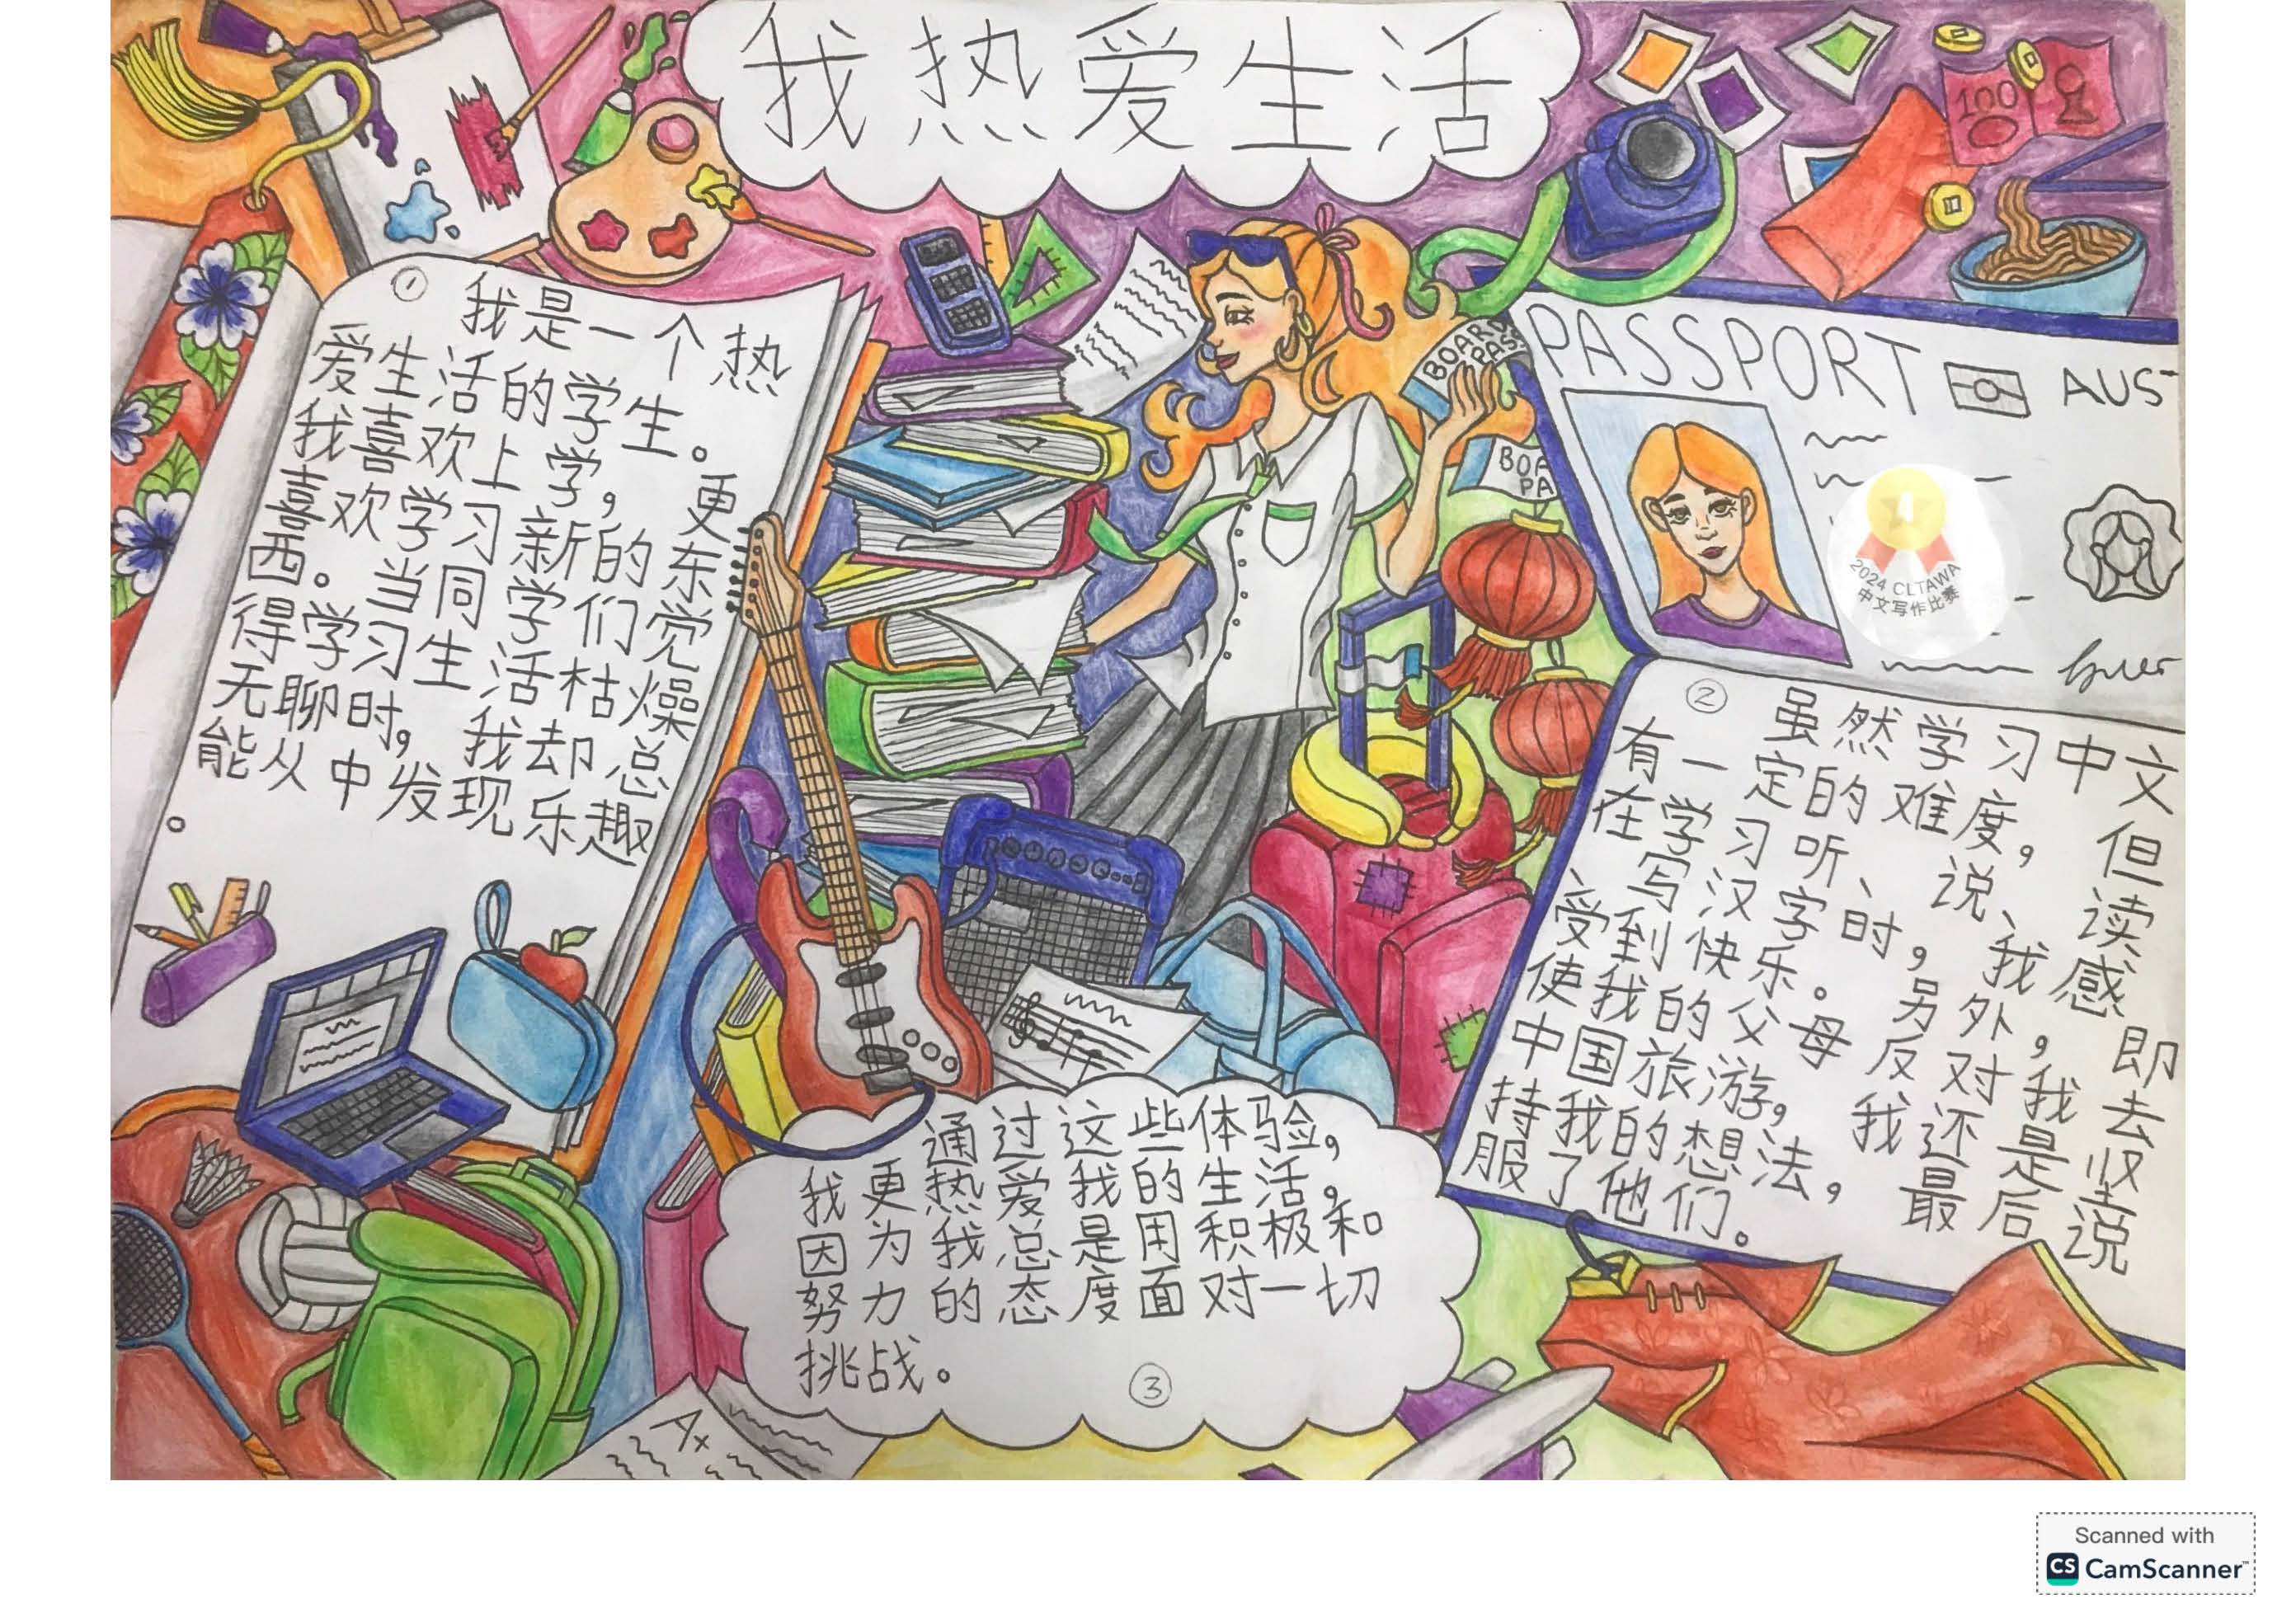 我热爱生活
100
①
我是一个热
爱生活的学生。
我喜欢上学，更
喜欢学习新的东
西。当同学们觉
得学习生活枯燥
无聊时，我却总
能从中发现乐趣
。
BOARD
PASS
BOA
PA
PASSPORT
AUS
2024 CLTAWA
中文写作比赛
②
虽然学习中文
有一定的难度，但
在学习听、说、读
、写汉字时，我感
受到快乐。另外，即
使我的父母反对我去
中国旅游，我还是坚
持我的想法，最后说
服了他们。
通过这些体验，
我更热爱我的生活，
因为我总是用积极和
努力的态度面对一切
挑战。
③
Scanned with
CS CamScanner